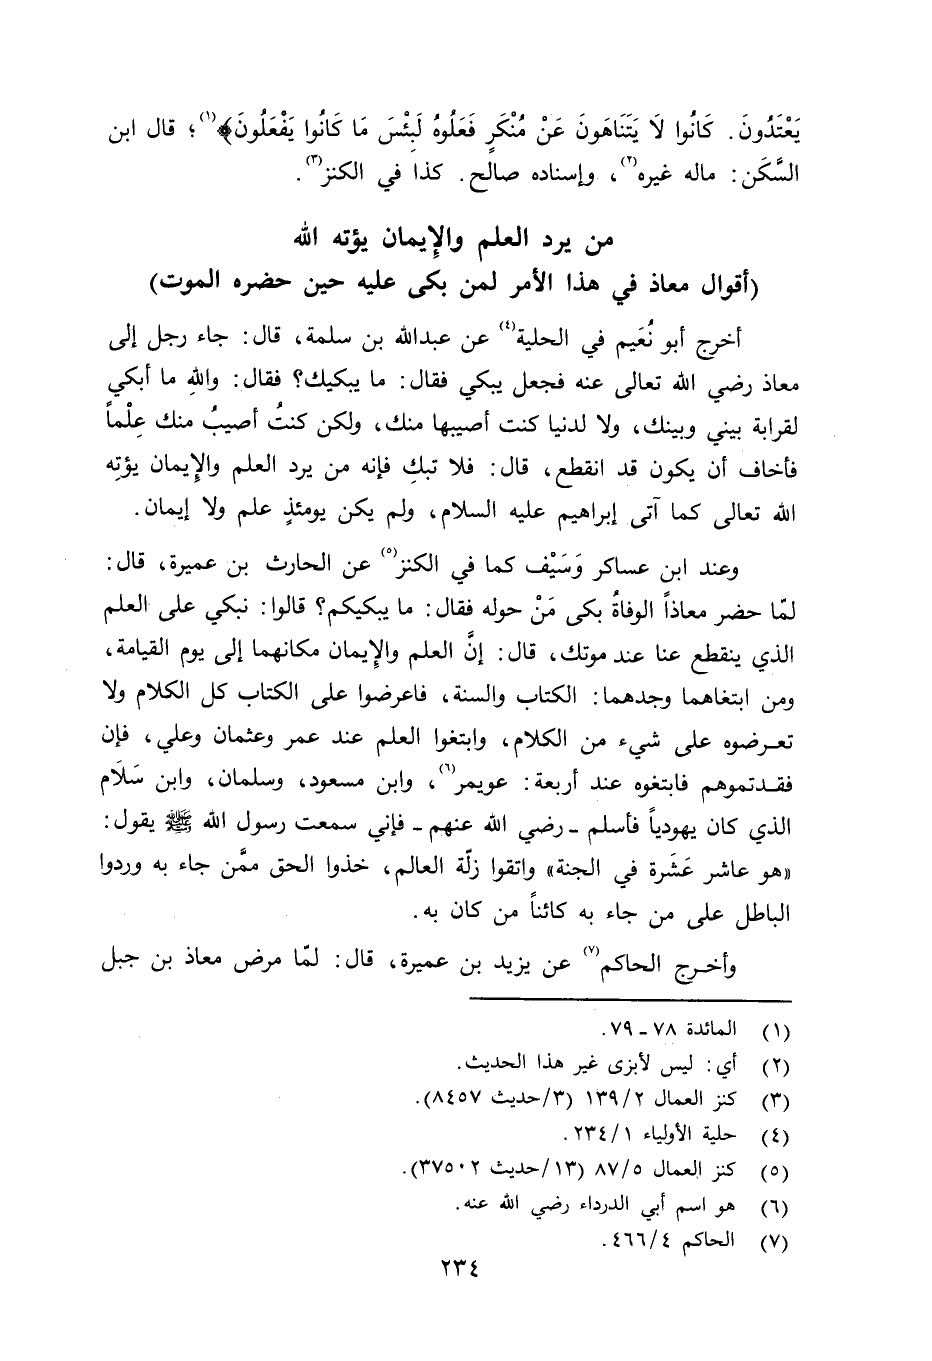 يَعْتَدُونَ. كَانُوا لَا يَتَنَاهَونَ عَنْ مُنْكَرٍ فَعَلُوهُ لَبِئْسَ مَا كَانُوا يَفْعَلُونَ﴾(١)؛ قال ابن
السَّكَن: ماله غيره(٢)، وإسناده صالح. كذا في الكنز(٣).
من يرد العلم والإِيمان يؤته الله
(أقوال معاذ في هذا الأمر لمن بكى عليه حين حضره الموت)
أخرج أبو نُعَيم في الحلية(٤) عن عبدالله بن سلمة، قال: جاء رجل إلى
معاذ رضي الله تعالى عنه فجعل يبكي فقال: ما يبكيك؟ فقال: واللهِ ما أبكي
لقرابة بيني وبينك، ولا لدنيا كنت أصيبها منك، ولكن كنتُ أصيبُ منك عِلْماً
فأخاف أن يكون قد انقطع، قال: فلا تبكِ فإنه من يرد العلم والإِيمان يؤتِه
الله تعالى كما آتى إبراهيم عليه السلام، ولم يكن يومئذٍ علم ولا إيمان.
وعند ابن عساكر وَسَيْف كما في الكنز(٥) عن الحارث بن عميرة، قال:
لمّا حضر معاذاً الوفاةُ بكى مَنْ حوله فقال: ما يبكيكم؟ قالوا: نبكي على العلم
الذي ينقطع عنا عند موتك، قال: إنَّ العلم والإِيمان مكانهما إلى يوم القيامة،
ومن ابتغاهما وجدهما: الكتاب والسنة، فاعرضوا على الكتاب كل الكلام ولا
تعرضوه على شيء من الكلام، وابتغوا العلم عند عمر وعثمان وعلي، فإن
فقدتموهم فابتغوه عند أربعة: عويمر(٦)، وابن مسعود، وسلمان، وابن سَلَام
الذي كان يهودياً فأسلم ـ رضي الله عنهم ـ فإني سمعت رسول الله ﷺ يقول:
«هو عاشر عَشَرة في الجنة» واتقوا زلّة العالم، خذوا الحق ممَّن جاء به وردوا
الباطل على من جاء به كائناً من كان به.
وأخرج الحاكم(٧) عن يزيد بن عميرة، قال: لمّا مرض معاذ بن جبل
(١) المائدة ٧٨ ـ ٧٩.
(٢) أي: ليس لأبزى غير هذا الحديث.
(٣) كنز العمال ٢/ ١٣٩ (٣/حديث ٨٤٥٧).
(٤) حلية الأولياء ١/ ٢٣٤.
(٥) كنز العمال ٥/ ٨٧ (١٣/حديث ٣٧٥٠٢).
(٦) هو اسم أبي الدرداء رضي الله عنه.
(٧) الحاكم ٤/ ٤٦٦.
٢٣٤